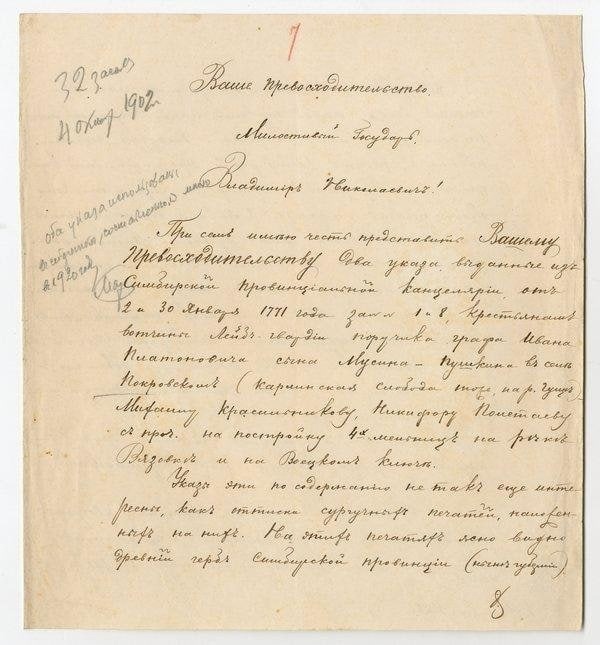 7
32 засед
4 Октяр 1902 г.
Ваше Превосходительство.
Милостивый Государь,
Владиміръ Николаевичъ!
оба указа использованы
въ составленной мною
въ 1920 год
При семъ имѣю честь представить Вашему
Превосходительству два указа, выданные изъ
Симбирской провинціальной канцеляріи отъ
2 и 30 Января 1771 года за №№ 1 и 8, крестьянамъ
вотчины Лейбъ-гвардіи поручика графа Ивана
Платоновича сына Мусина-Пушкина въ селѣ
Покровскомъ (Карлинская слобода тожъ, на р. Гущѣ)
Михаилу Красильникову, Никифору Полетаеву
съ проч. на постройку 4х мельницъ на рѣчкѣ
Вязовкѣ и на Воецкомъ ключѣ.
Указы эти по содержанію не такъ еще инте-
ресны, какъ оттиски сургучныхъ печатей, наложен-
ныхъ на нихъ. На этихъ печатяхъ ясно видно
древній гербъ Симбирской провинціи (нынѣ губерніи).